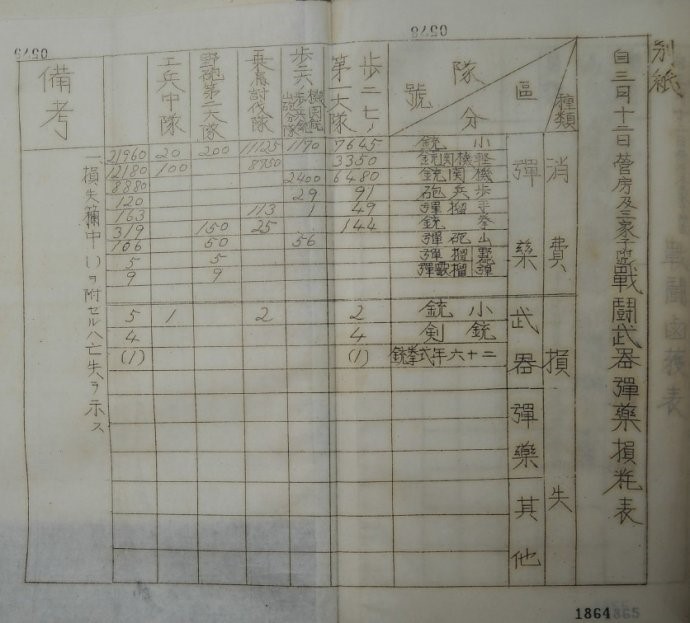 別紙
自三月十二日營房及三家子附近戰鬪武器彈藥損耗表
種類
區分
隊號
消費
彈藥
損失
武器
彈藥
其他
小銃
輕機關銃
機關銃
步兵砲
手榴彈
拳銃
山砲彈
小銃
銃劍
二十六年式拳銃
步二七ノ第一大隊
7645
3350
6480
91
49
144
2
4
(1)
1170
2400
29
1
56
討伐隊
11125
8950
113
25
2
野砲第二大隊
200
150
50
5
9
工兵中隊
20
100
1
21960
12180
8880
120
163
319
106
5
9
5
4
(1)
備考
一、損失欄中( )ヲ附セルハ亡失ヲ示ス
0578
1864